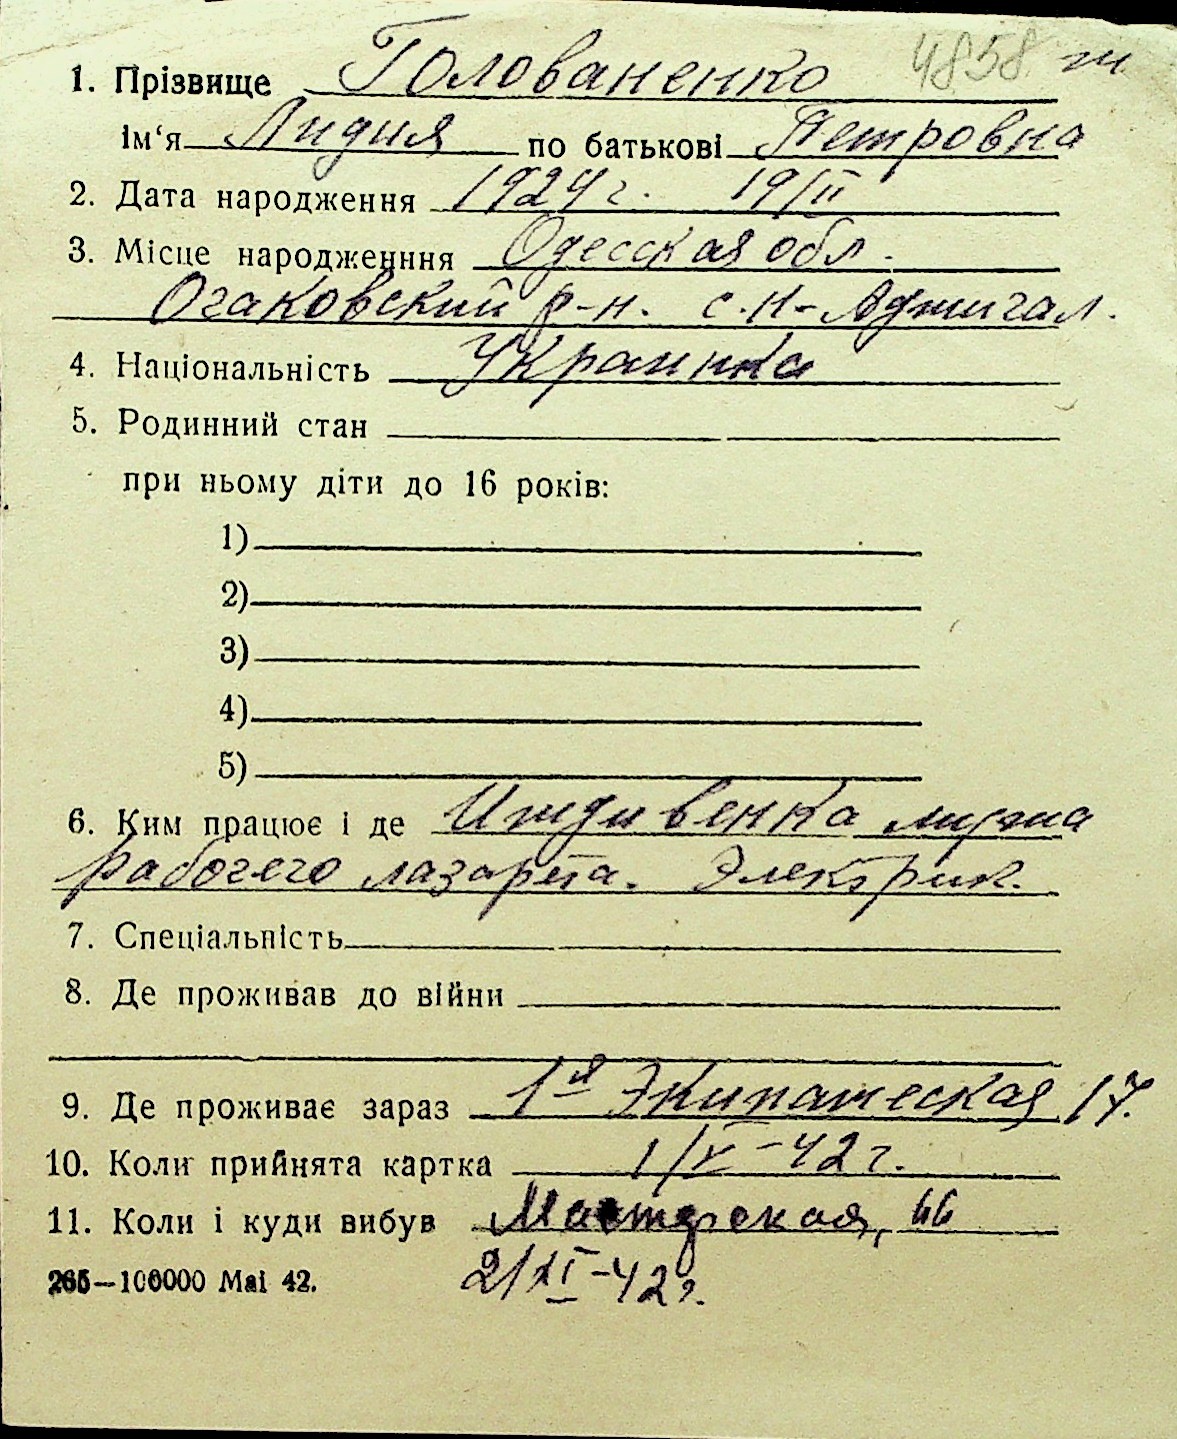 4858 ж
1. Прізвище Голованенко
ім‘я Лидия по батькові Петровна
2. Дата народження 1924 г. 19/II
3. Місце народженння Одесская обл.
Очаковский р-н. с. Н-Аджигал.
4. Національність Украинка
5. Родинний стан
при ньому діти до 16 років:
1)
2)
3)
4)
5)
6. Ким працює і де Иждивенка мужа
рабочего лазарета. Электрик.
7. Спеціальність
8. Де проживав до війни
9. Де проживає зараз 1я Экипажеская 17.
10. Коли прийнята картка 1/V-42 г.
11. Коли і куди вибув Мастерская, 66
265—100000 Mai 42. 2/XI-42 г.